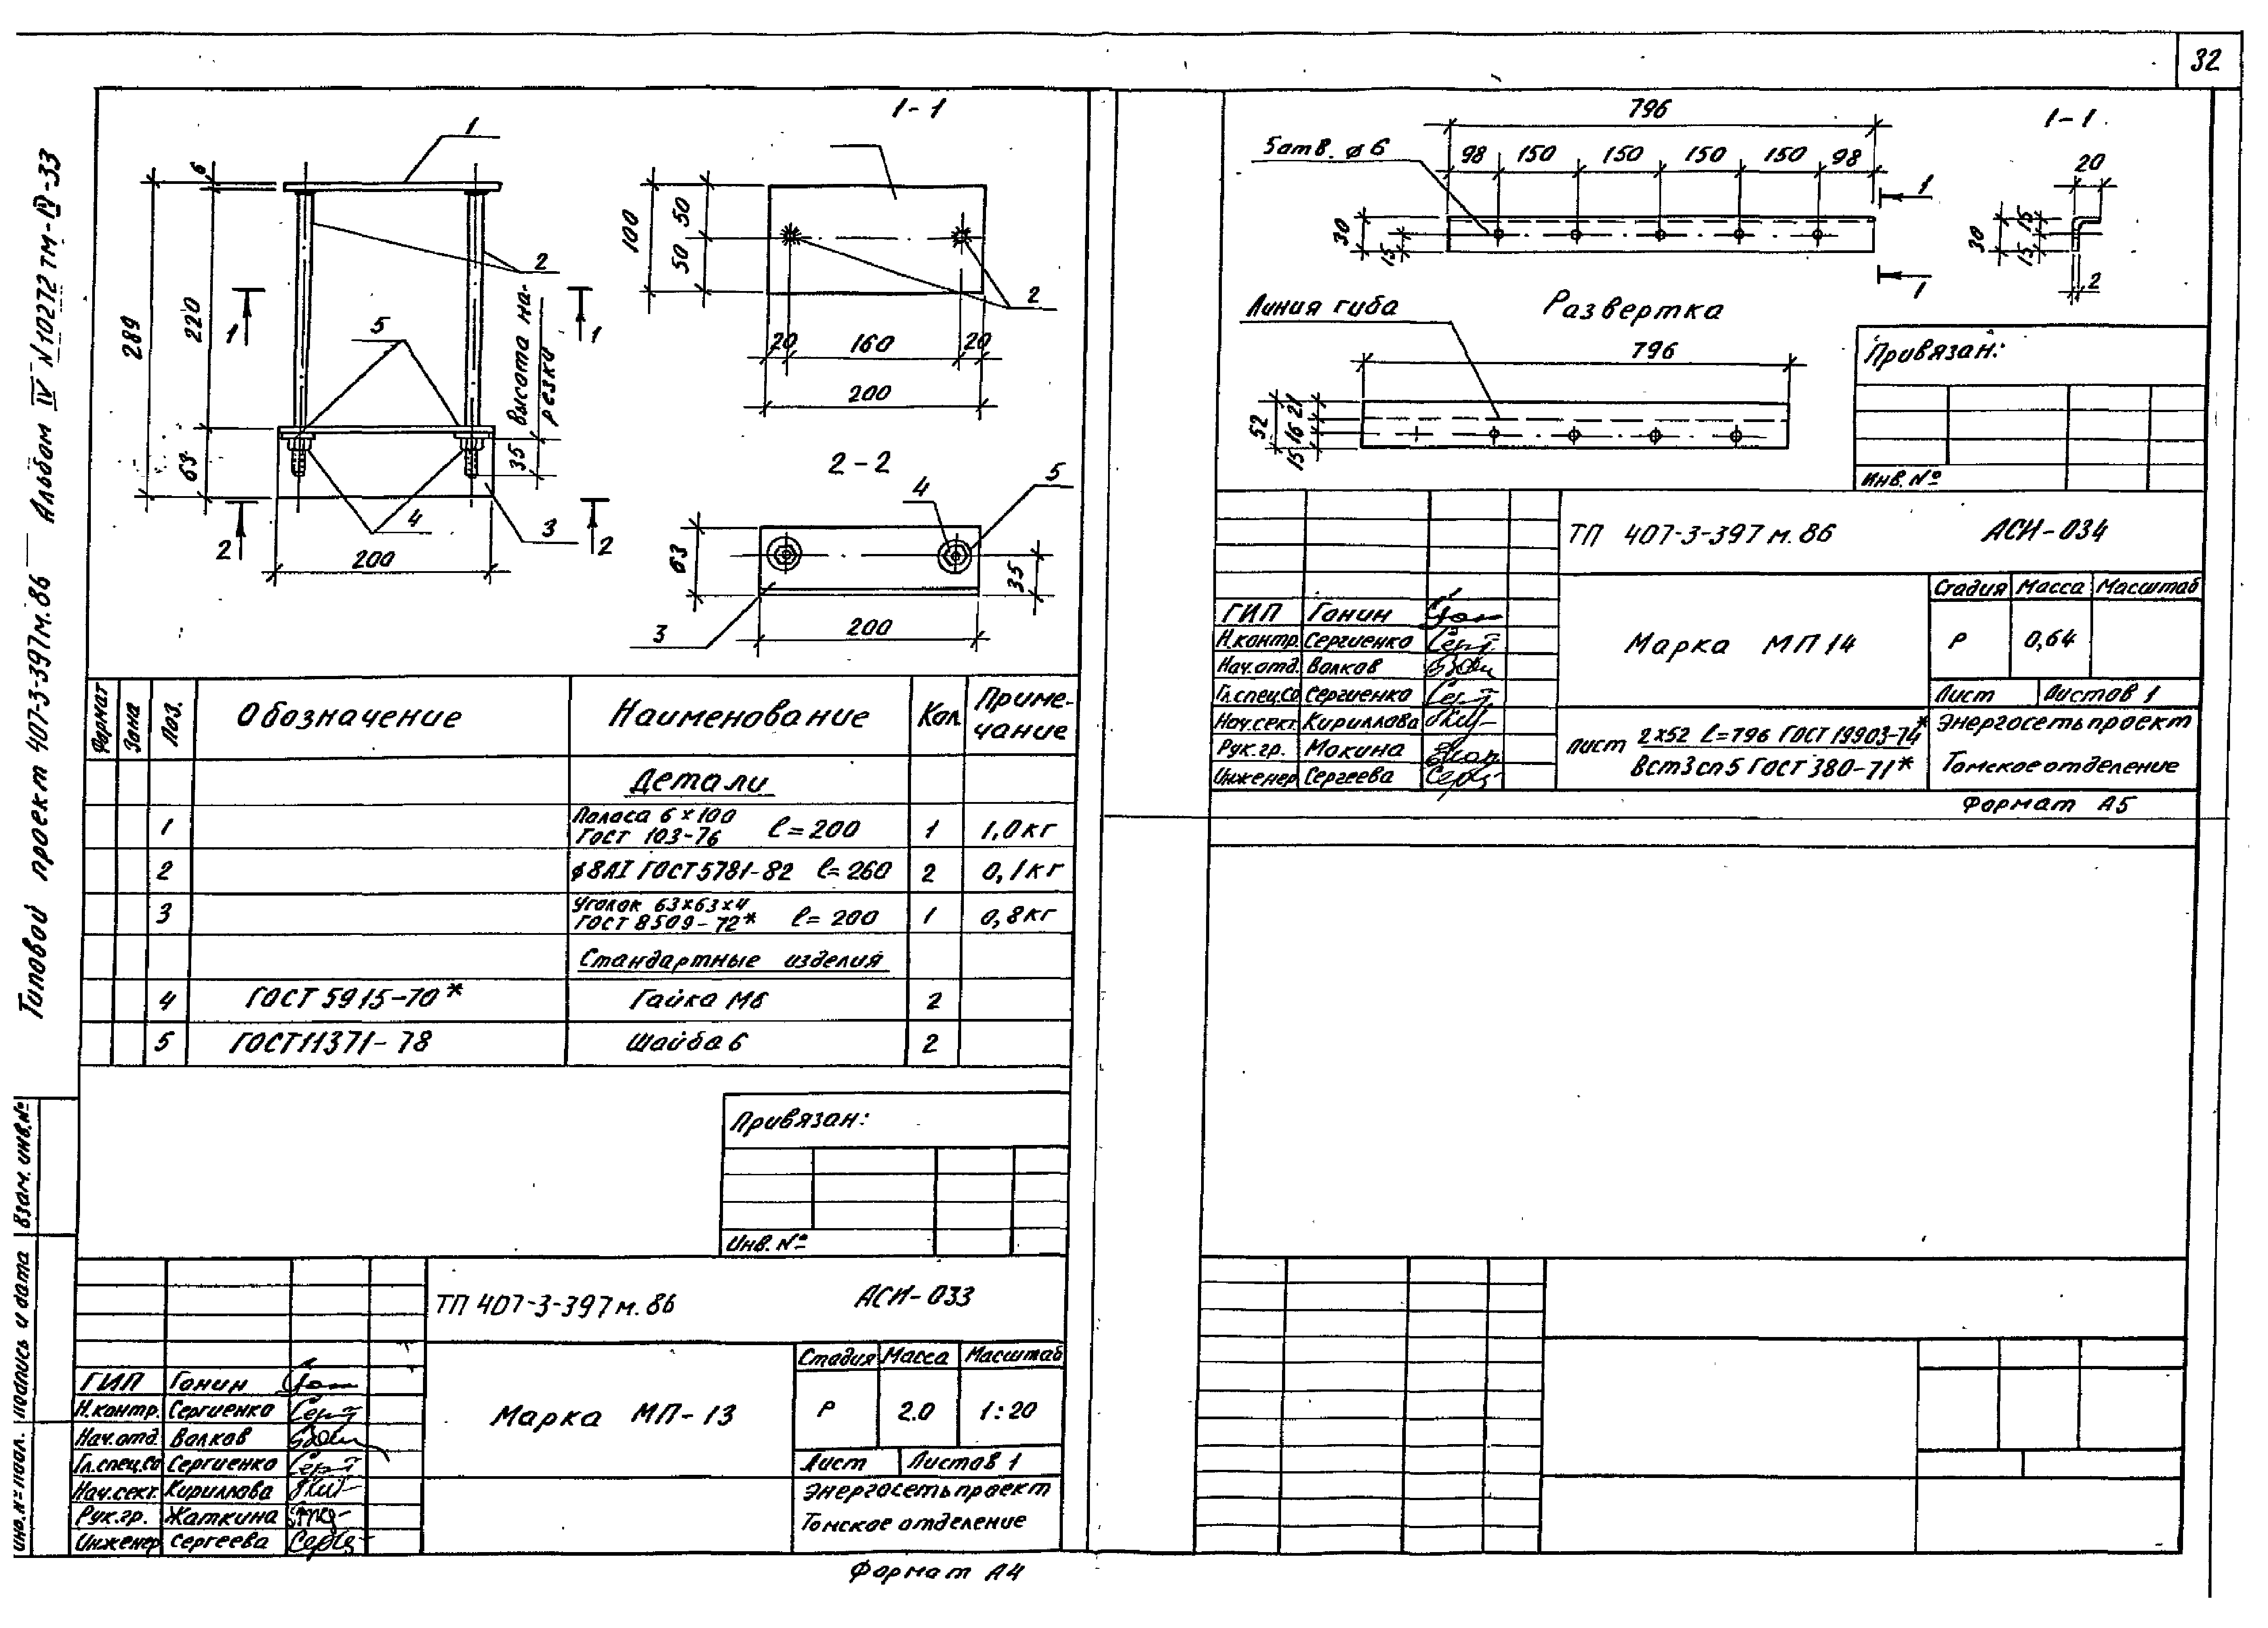 32
Типовой проект 407-3-397м.86 Альбом IV №10272тм-IV-33
Взам. инв.№
Подпись и дата
Инв.№ подл.
1
6
289
220
63
2
1
1
5
Высота на-
резки
35
4
3
2
2
200
1-1
100
50
50
2
20
160
20
200
2-2
4
5
63
35
3
200
Формат
Зона
Поз.
Обозначение
Наименование
Кол.
Приме-
чание
Детали
1
Полоса 6×100
ГОСТ 103-76 ℓ=200
1
1,0кг
2
ϕ8АI ГОСТ 5781-82 ℓ=260
2
0,1кг
3
Уголок 63×63×4
ГОСТ 8509-72* ℓ=200
1
0,8кг
Стандартные изделия
4
ГОСТ 5915-70*
Гайка М6
2
5
ГОСТ 11371-78
Шайба 6
2
Привязан:
Инв. №
ТП 407-3-397м.86
АСИ-033
ГИП Гонин
Н.контр. Сергиенко
Нач.отд. Волков
Гл.спец.СО Сергиенко
Нач.сект. Кириллова
Рук.гр. Жаткина
Инженер Сергеева
Марка МП-13
Стадия Масса Масштаб
Р 2.0 1:20
Лист Листов 1
Энергосетьпроект
Томское отделение
Формат А4
796
5отв. ϕ6
98 150 150 150 150 98
30
15
1
1
1-1
20
30
15
15
2
Линия гиба
Развертка
796
52
21
16
15
Привязан:
Инв. №
ТП 407-3-397м.86
АСИ-034
ГИП Гонин
Н.контр. Сергиенко
Нач.отд. Волков
Гл.спец.СО Сергиенко
Нач.сект. Кириллова
Рук.гр. Мокина
Инженер Сергеева
Марка МП14
Стадия Масса Масштаб
Р 0,64
Лист Листов 1
Лист 2×52 ℓ=796 ГОСТ 19903-74*
Вст3сп5 ГОСТ 380-71*
Энергосетьпроект
Томское отделение
Формат А5